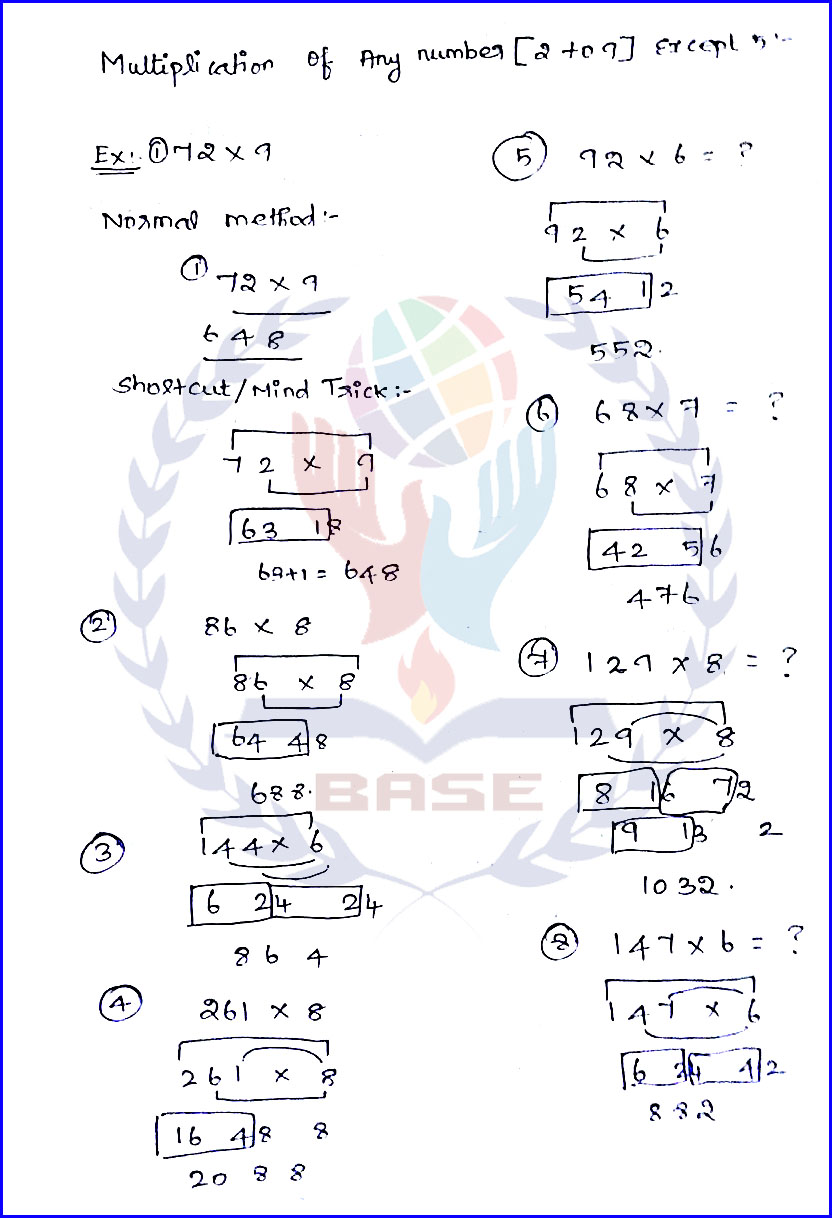 Multiplication of Any number [2 to 9] Except 5:-
Ex:- ① 72 x 9
Normal method:-
① 72 x 9
6 4 8
Shortcut/Mind Trick:-
7 2 x 9
63 18
63+1 = 648
② 86 x 8
86 x 8
64 48
688.
③ 144 x 6
6 24 24
8 6 4
④ 261 x 8
2 6 1 x 8
16 48 8
20 8 8
⑤ 92 x 6 = ?
9 2 x 6
54 12
552.
⑥ 68 x 7 = ?
6 8 x 7
42 56
476
⑦ 129 x 8 = ?
129 x 8
8 16 72
9 13 2
1032.
⑧ 147 x 6 = ?
1 4 7 x 6
6 24 42
8 8 2
BASE